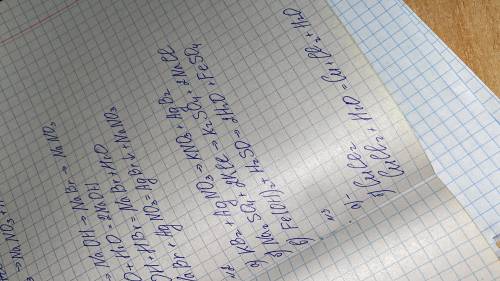 → NaNO₃ + H
→ NaOH → NaBr → NaNO₃
O + H₂O = 2NaOH
OH + HBr = NaBr + H₂O
NaBr + AgNO₃ = AgBr↓ + NaNO₃
а) KBr + AgNO₃ → KNO₃ + AgBr
б) Na₂SO₄ + 2KCl → K₂SO₄ + 2NaCl
в) Fe(OH)₂ + H₂SO → 2H₂O + FeSO₄
а) -
б) CuCl₂
CuCl₂ + H₂O = Cu + Cl₂ + H₂O